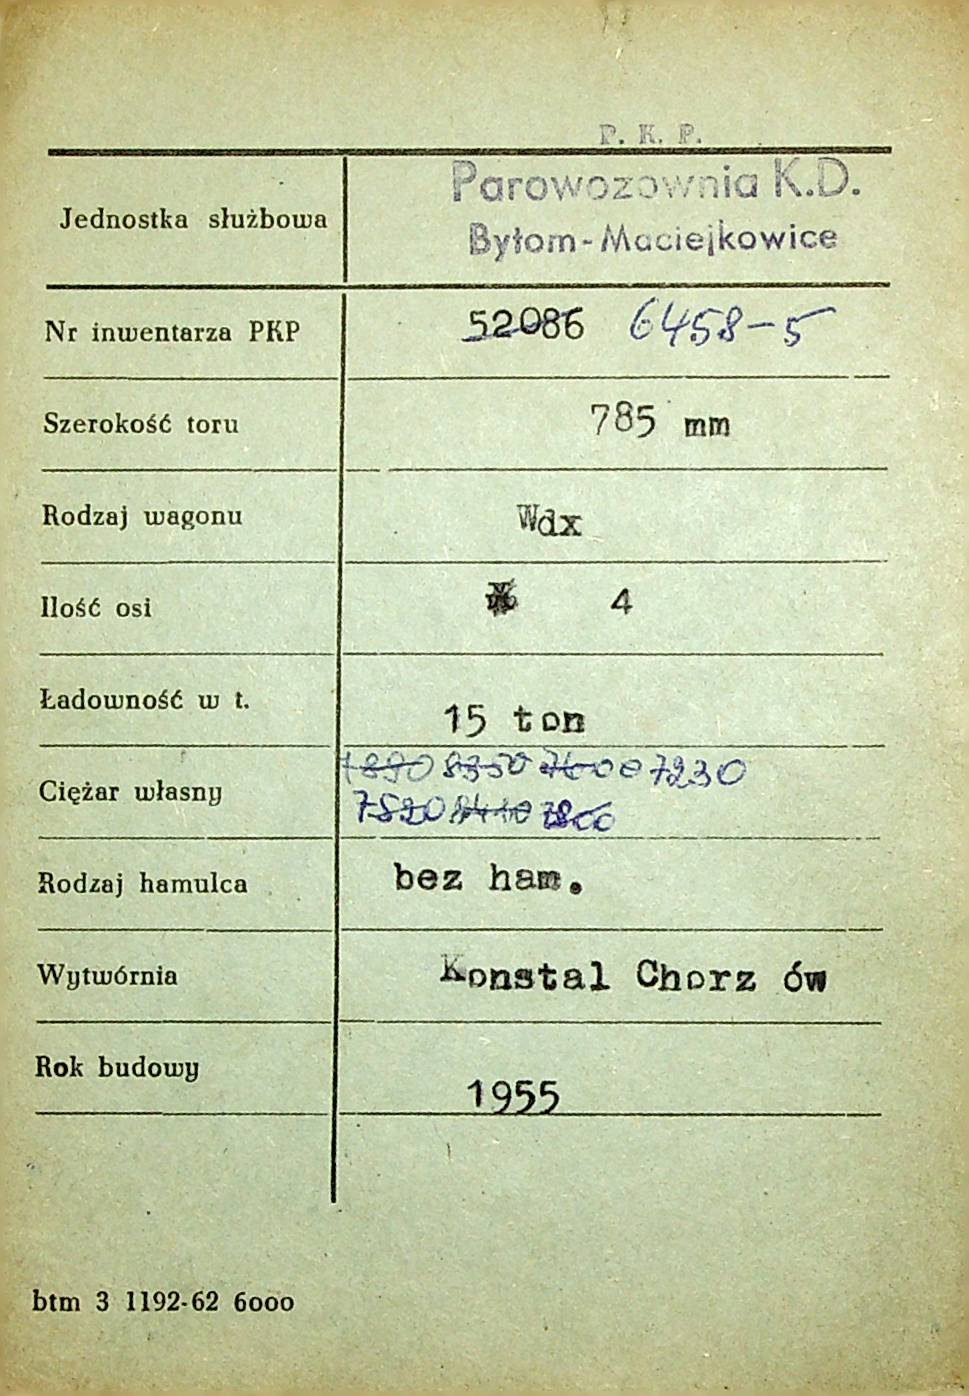 P. K. P.
Jednostka służbowa Parowozownia K.D.
Bytom-Maciejkowice
Nr inwentarza PKP 52086 6458-5
Szerokość toru 785 mm
Rodzaj wagonu Wdx
Ilość osi 4
Ładowność w t. 15 ton
Ciężar własny 7890 8350 7600 7230
7820 8410 7800
Rodzaj hamulca bez ham.
Wytwórnia Konstal Chorz ów
Rok budowy 1955
btm 3 1192-62 6000